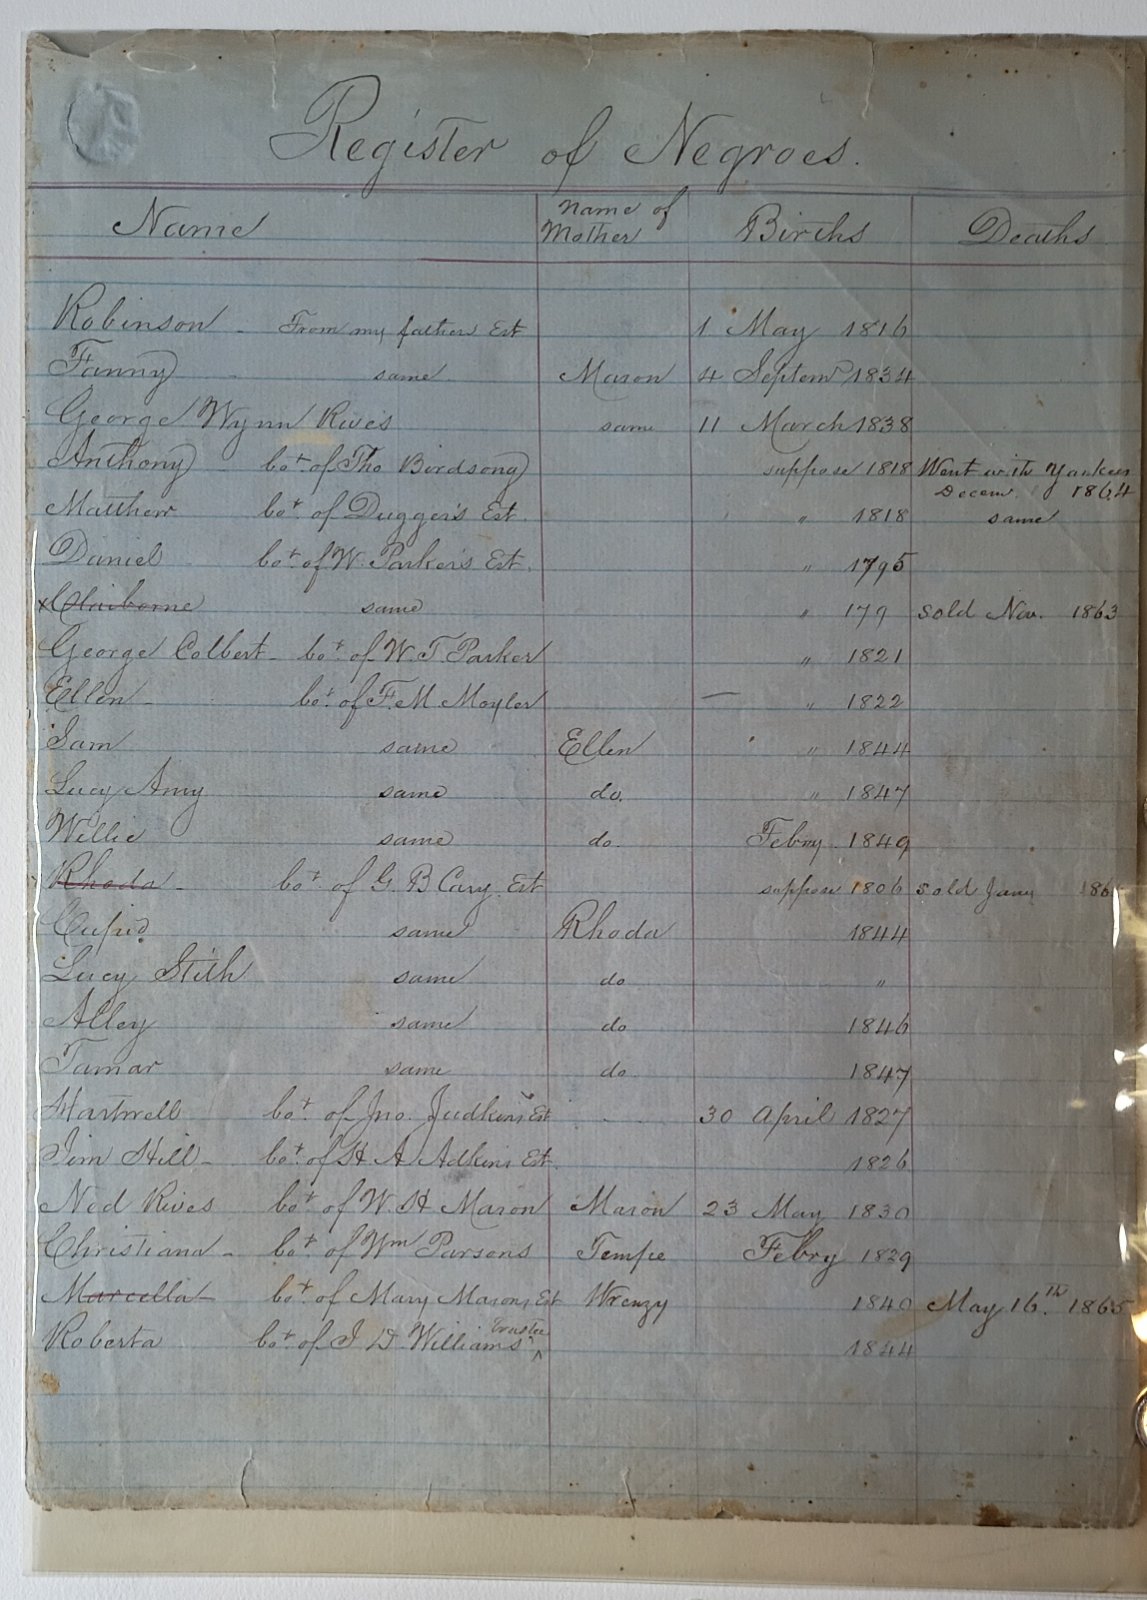 Register of Negroes.
Name
Name of
Mother
Births
Deaths
Robinson - From my father Est 1 May 1816
Fanny - same Mason 4 Septemr 1834
George Wynn Rives same 11 March 1838
Anthony bot of Tho Birdsong suppose 1818 Went with Yankees
Decem. 1864
Matthew bot of Dugger's Est. " 1818 same
Daniel bot of W. Parker's Est. " 1795
x Claiborne same " 179 sold Nov. 1863
George Colbert - bot of W. T. Parker " 1821
Ellen - bot of F. M Moyler — " 1822
Sam same Ellen " 1844
Lucy Amy same do. " 1847
Willie same do. Febry. 1849
Rhoda - bot of G. B Cary. Est suppose 1806 sold Jany 186
Cupid same Rhoda 1844
Lucy Stith same do "
Alley same do 1846
Tamar same do 1847
Hartwell bot of Jno. Judkins Est 30 April 1827
Jim Hill - bot of H A Adkins Est. 1826
Ned Rives bot of W. H Mason Mason 23 May 1830
Christiana - bot of Wm Parsons Tempe Febry 1829
Marcella bot of Mary Masons Est Wrenzy 1840 May 16.th 1865
trustee
Roberta bot of J D. Williams ^ 1844